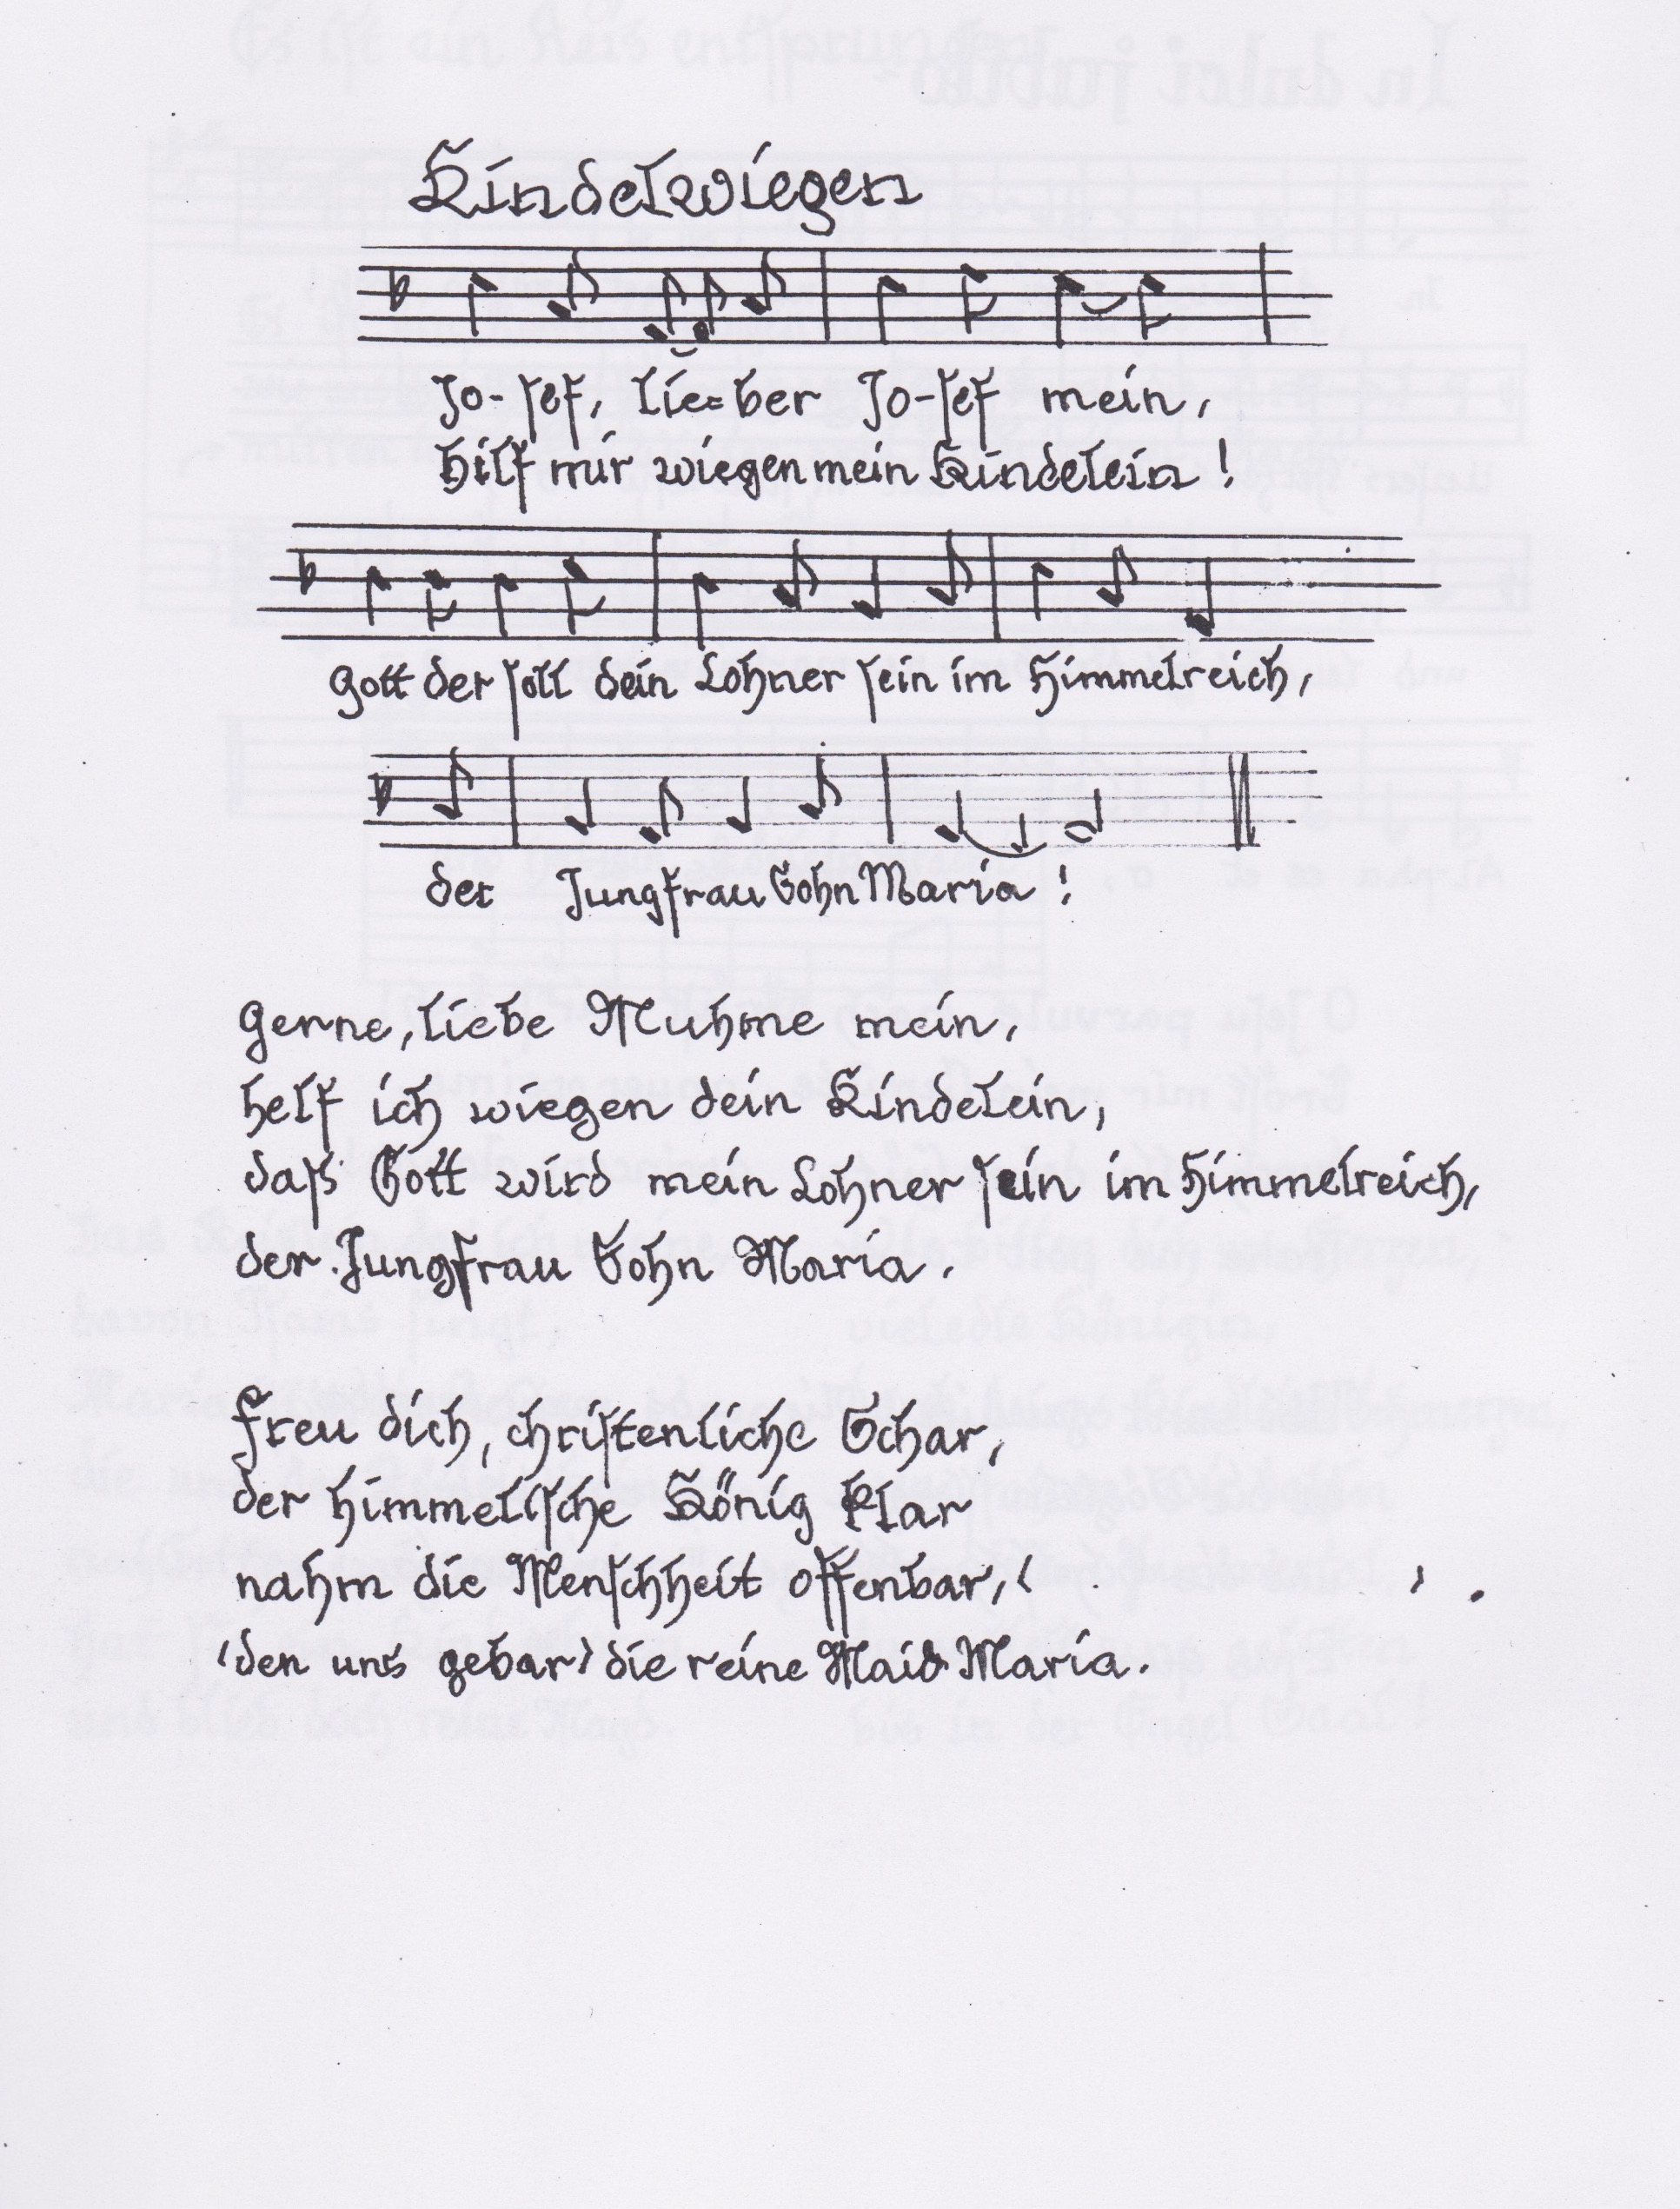 Kindelwiegen
Jo-ſef, lie=ber Jo-ſef mein,
hilf mir wiegen mein Kindelein!
Gott der ſoll dein Lohner ſein im Himmelreich,
der Jungfrau Sohn Maria!
Gerne, liebe Muhme mein,
helf ich wiegen dein Kindelein,
daſs Gott wird mein Lohner ſein im Himmelreich,
der Jungfrau Sohn Maria.
Freu dich, chriſtenliche Schar,
der himmeliſche König klar
nahm die Menſchheit offenbar,
den uns gebar die reine Maid Maria.